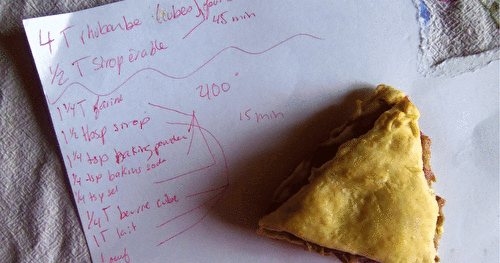 4 T rhubarbe (cubes) four
45 min
1/2 T Sirop érable
400°
1 1/4 T farine
1 1/2 tbsp sirop
15 min
1 1/4 tsp baking powder
1/4 tsp baking soda
1/4 tsp sel
1/4 T beurre cube
1 T lait
1 oeuf